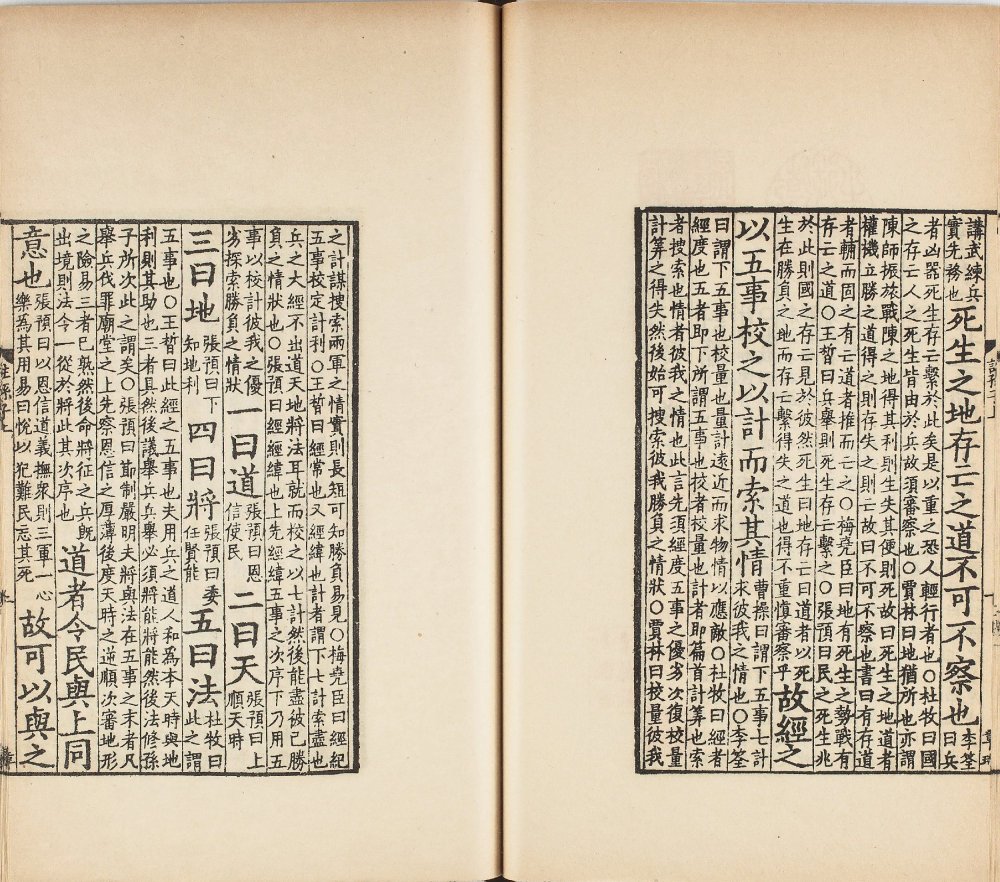 講武練兵實先務也死生之地存亡之道不可不察也李筌曰兵
者凶器死生存亡繫於此矣是以重之恐人輕行者也○杜牧曰國
之存亡人之死生皆由於兵故須審察也○賈林曰地猶所也亦謂
陳師振旅戰陳之地得其利則生失其便則死故曰死生之地道者
權機立勝之道得之則存失之則亡故曰不可不察也書曰有存道
者輔而固之有亡道者推而亡之○梅堯臣曰地有死生之勢戰有
存亡之道○王晳曰兵舉則死生存亡繫之○張預曰民之死生兆
於此則國之存亡見於彼然死生曰地存亡曰道者以死
生在勝負之地而存亡繫得失之道也得不重慎審察乎故經之
以五事校之以計而索其情曹操曰謂下五事七計求彼我之情也○李筌
曰謂下五事也校量也量計遠近而求物情以應敵○杜牧曰經者
經度也五者即下所謂五事也校者校量也計者即篇首計算也索
者搜索也情者彼我之情也此言先須經度五事之優劣次復校量
計算之得失然後始可搜索彼我勝負之情狀○賈林曰校量彼我
之計謀搜索兩軍之情實則長短可知勝負易見○梅堯臣曰經紀
五事校定計利○王晳曰經常也又經緯也計者謂下七計索盡也
兵之大經不出道天地將法耳就而校之以七計然後能盡彼己勝
負之情狀也○張預曰經經緯也上先經緯五事之次序下乃用五
事以校計彼我之優劣探索勝負之情狀一曰道張預曰恩信使民二曰天張預曰上順天時
三曰地張預曰下知地利四曰將張預曰委任賢能五曰法杜牧曰此之謂
五事也○王晳曰此經之五事也夫用兵之道人和為本天時與地
利則其助也三者具然後議舉兵兵舉必須將能將能然後法修孫
子所次此之謂矣○張預曰節制嚴明夫將與法在五事之末者凡
舉兵伐罪廟堂之上先察恩信之厚薄後度天時之逆順次審地形
之險易三者已熟然後命將征之兵既出境則法令一從於將此其次序也道者令民與上同
意也張預曰以恩信道義撫衆則三軍一心樂為其用易曰悅以犯難民忘其死故可以與之